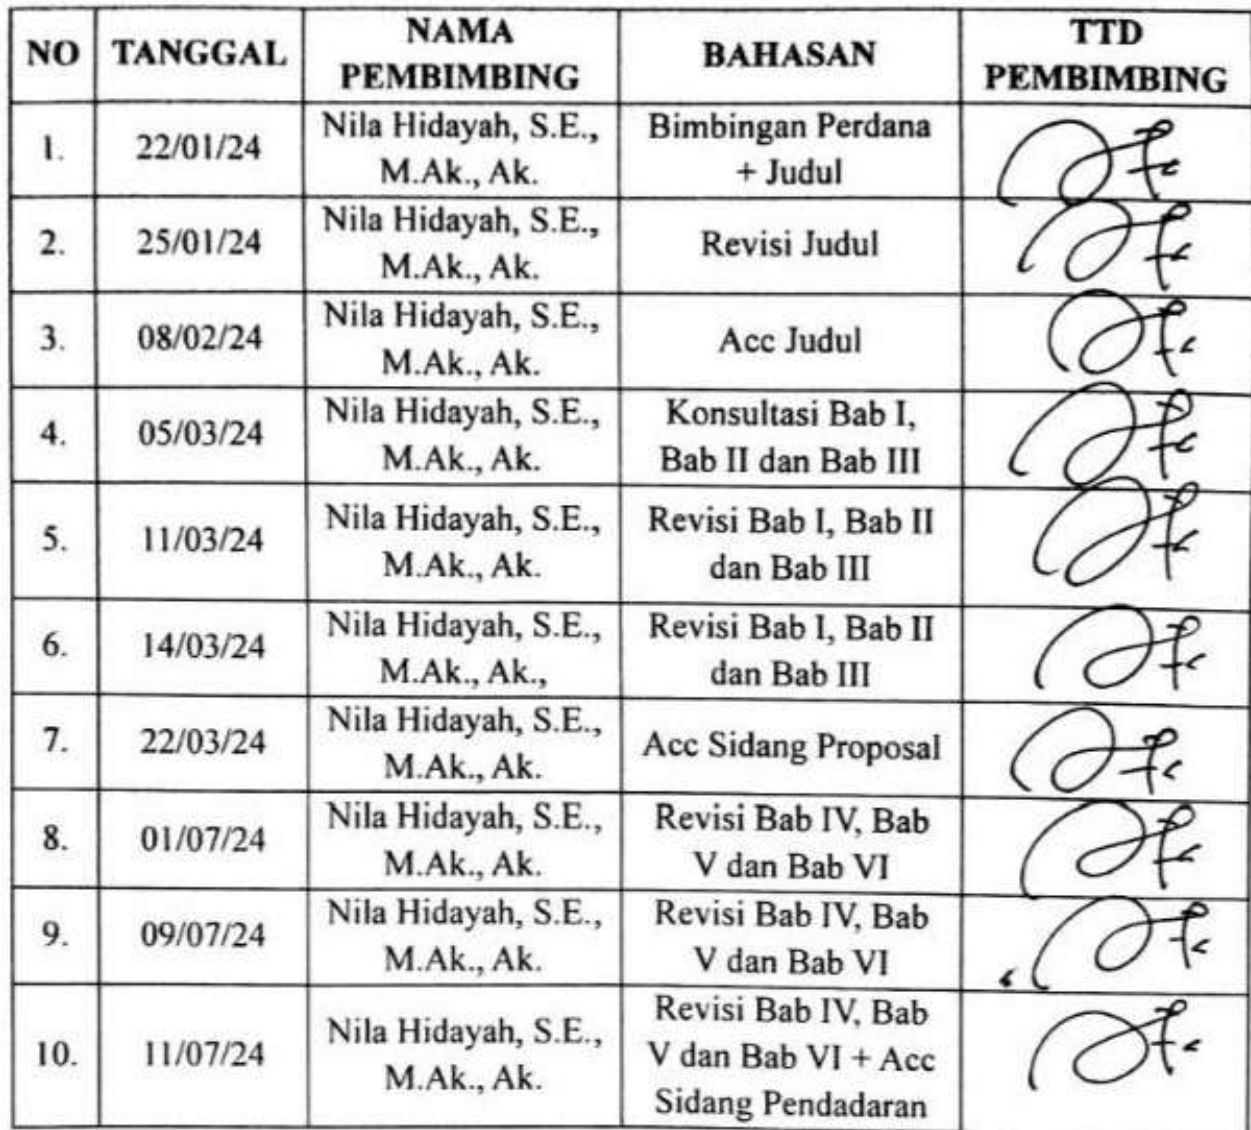 NO TANGGAL NAMA PEMBIMBING BAHASAN TTD PEMBIMBING
1. 22/01/24 Nila Hidayah, S.E., M.Ak., Ak. Bimbingan Perdana + Judul
2. 25/01/24 Nila Hidayah, S.E., M.Ak., Ak. Revisi Judul
3. 08/02/24 Nila Hidayah, S.E., M.Ak., Ak. Acc Judul
4. 05/03/24 Nila Hidayah, S.E., M.Ak., Ak. Konsultasi Bab I, Bab II dan Bab III
5. 11/03/24 Nila Hidayah, S.E., M.Ak., Ak. Revisi Bab I, Bab II dan Bab III
6. 14/03/24 Nila Hidayah, S.E., M.Ak., Ak., Revisi Bab I, Bab II dan Bab III
7. 22/03/24 Nila Hidayah, S.E., M.Ak., Ak. Acc Sidang Proposal
8. 01/07/24 Nila Hidayah, S.E., M.Ak., Ak. Revisi Bab IV, Bab V dan Bab VI
9. 09/07/24 Nila Hidayah, S.E., M.Ak., Ak. Revisi Bab IV, Bab V dan Bab VI
10. 11/07/24 Nila Hidayah, S.E., M.Ak., Ak. Revisi Bab IV, Bab V dan Bab VI + Acc Sidang Pendadaran